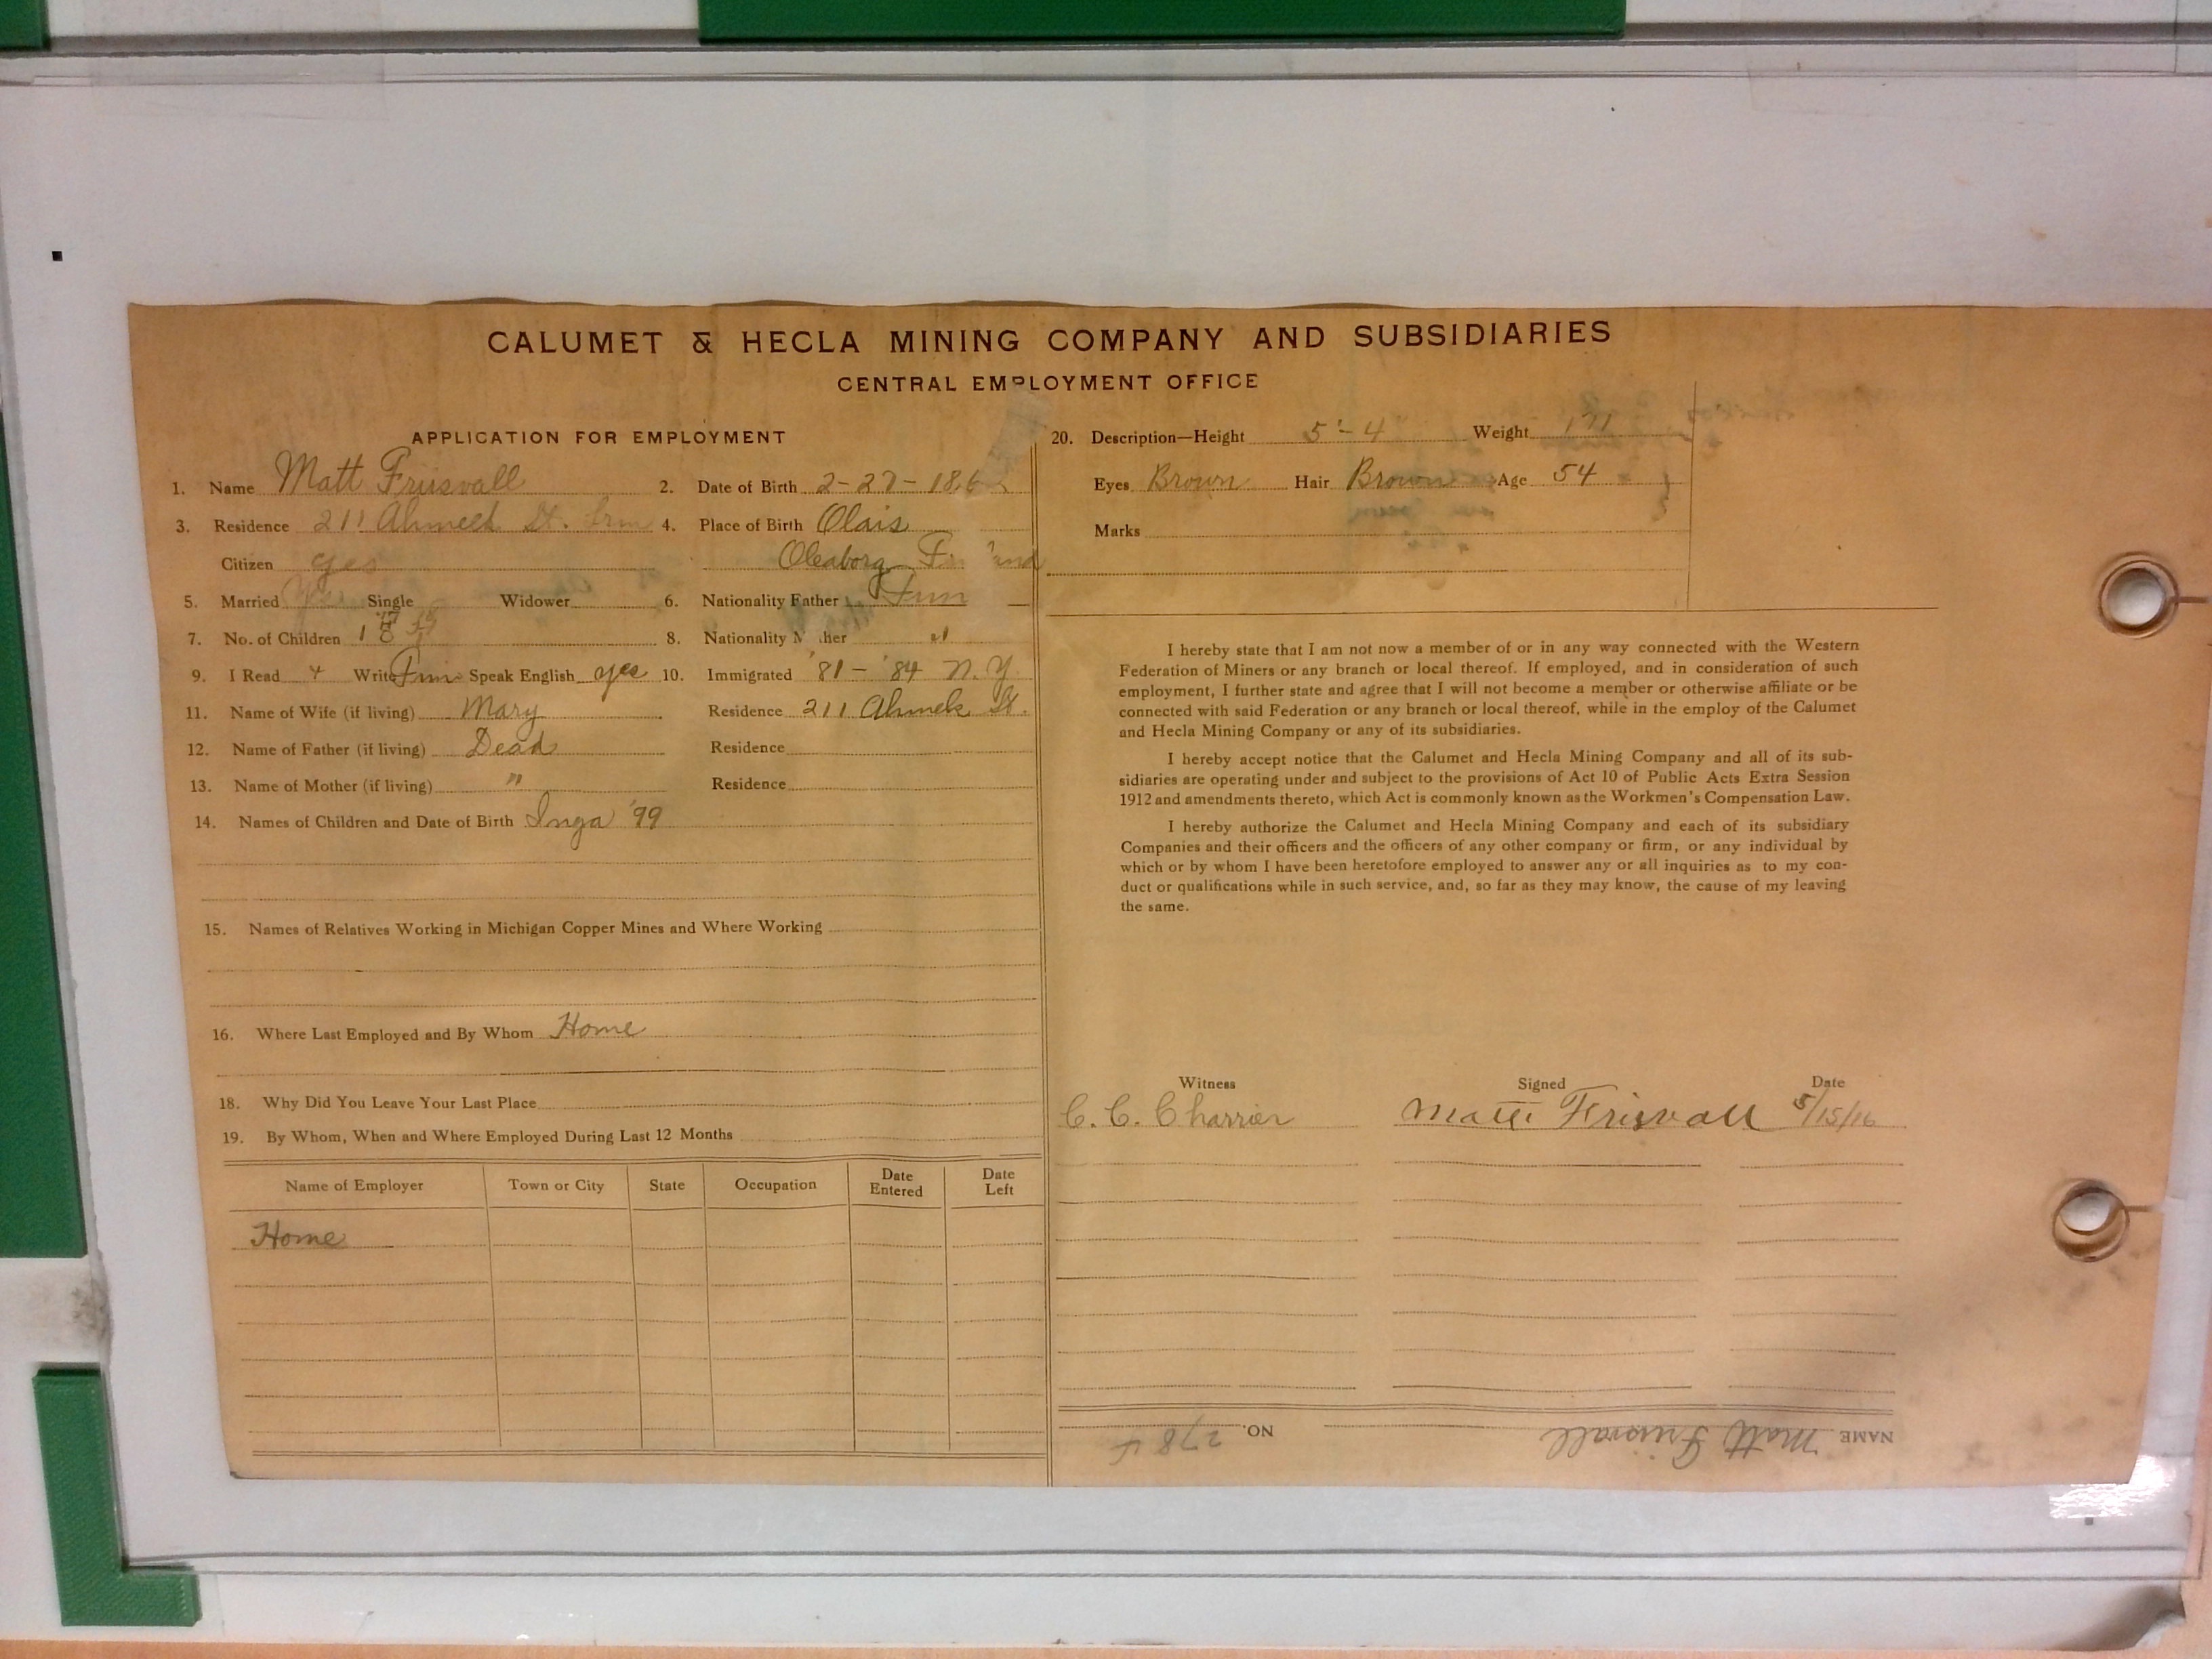 CALUMET & HECLA MINING COMPANY AND SUBSIDIARIES
CENTRAL EMPLOYMENT OFFICE
APPLICATION FOR EMPLOYMENT
1. Name Matt Friisvall 2. Date of Birth 2-27-186
3. Residence 211 Ahmeek St. 4. Place of Birth Olais
Citizen yes Oleaborg
5. Married Yes Single Widower 6. Nationality Father Finn
7. No. of Children 8. Nationality Mother "
9. I Read + Write Finn Speak English yes 10. Immigrated '81 - '84 N.Y.
11. Name of Wife (if living) Mary Residence 211 Ahmek St.
12. Name of Father (if living) Dead Residence
13. Name of Mother (if living) " Residence
14. Names of Children and Date of Birth Inga '99
15. Names of Relatives Working in Michigan Copper Mines and Where Working
16. Where Last Employed and By Whom Home
18. Why Did You Leave Your Last Place
19. By Whom, When and Where Employed During Last 12 Months
Name of Employer Town or City State Occupation Date Entered Date Left
Home
20. Description—Height 5'-4 Weight 171
Eyes Brown Hair Brown Age 54
Marks
I hereby state that I am not now a member of or in any way connected with the Western
Federation of Miners or any branch or local thereof. If employed, and in consideration of such
employment, I further state and agree that I will not become a member or otherwise affiliate or be
connected with said Federation or any branch or local thereof, while in the employ of the Calumet
and Hecla Mining Company or any of its subsidiaries.
I hereby accept notice that the Calumet and Hecla Mining Company and all of its sub-
sidiaries are operating under and subject to the provisions of Act 10 of Public Acts Extra Session
1912 and amendments thereto, which Act is commonly known as the Workmen's Compensation Law.
I hereby authorize the Calumet and Hecla Mining Company and each of its subsidiary
Companies and their officers and the officers of any other company or firm, or any individual by
which or by whom I have been heretofore employed to answer any or all inquiries as to my con-
duct or qualifications while in such service, and, so far as they may know, the cause of my leaving
the same.
Witness Signed Date
C. C. Charrier Matti Frisvall 5/15/16
NAME Matt Friisvall NO. 2784